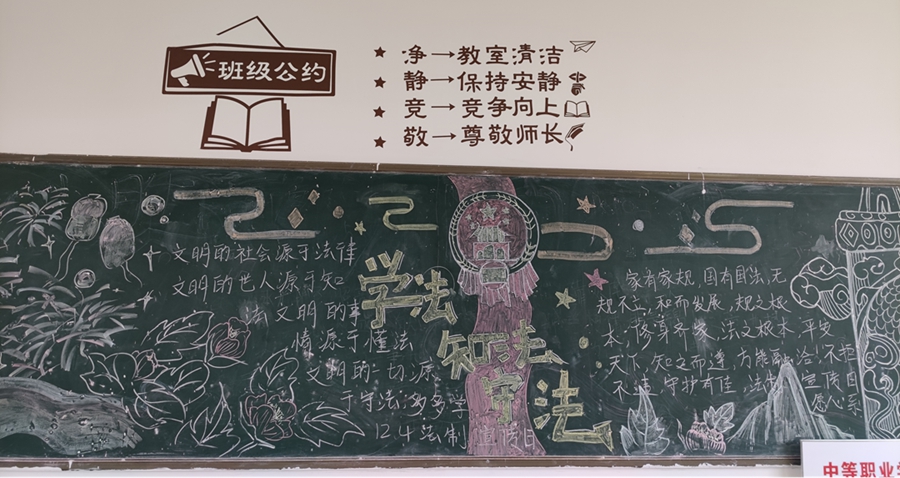 班级公约
净→教室清洁
静→保持安静
竞→竞争向上
敬→尊敬师长
文明的社会源于法律
文明的世人源于知
法 文明的事
情源于懂法
文明的一切源
于守法
124法制宣传日
学法
知法
守法
家有家规,国有国法,无
规不立,和而发展,规之根
本,修身齐家,法之根本,平安
天下,知之而遵,方能融洽!不
守护有佳
宣传日
愿心系
中等职业学